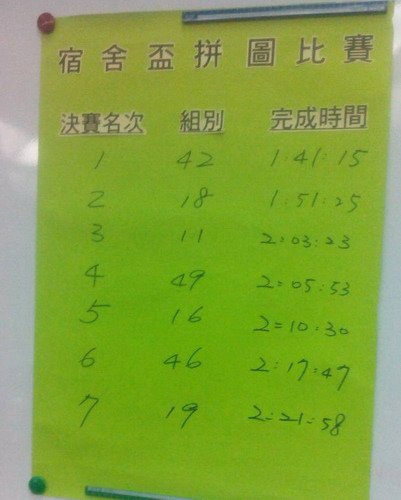 宿舍盃拼圖比賽
決賽名次 組別 完成時間
1 42 1:41:15
2 18 1:51:25
3 11 2:03:23
4 49 2:05:53
5 16 2:10:30
6 46 2:17:47
7 19 2:21:58